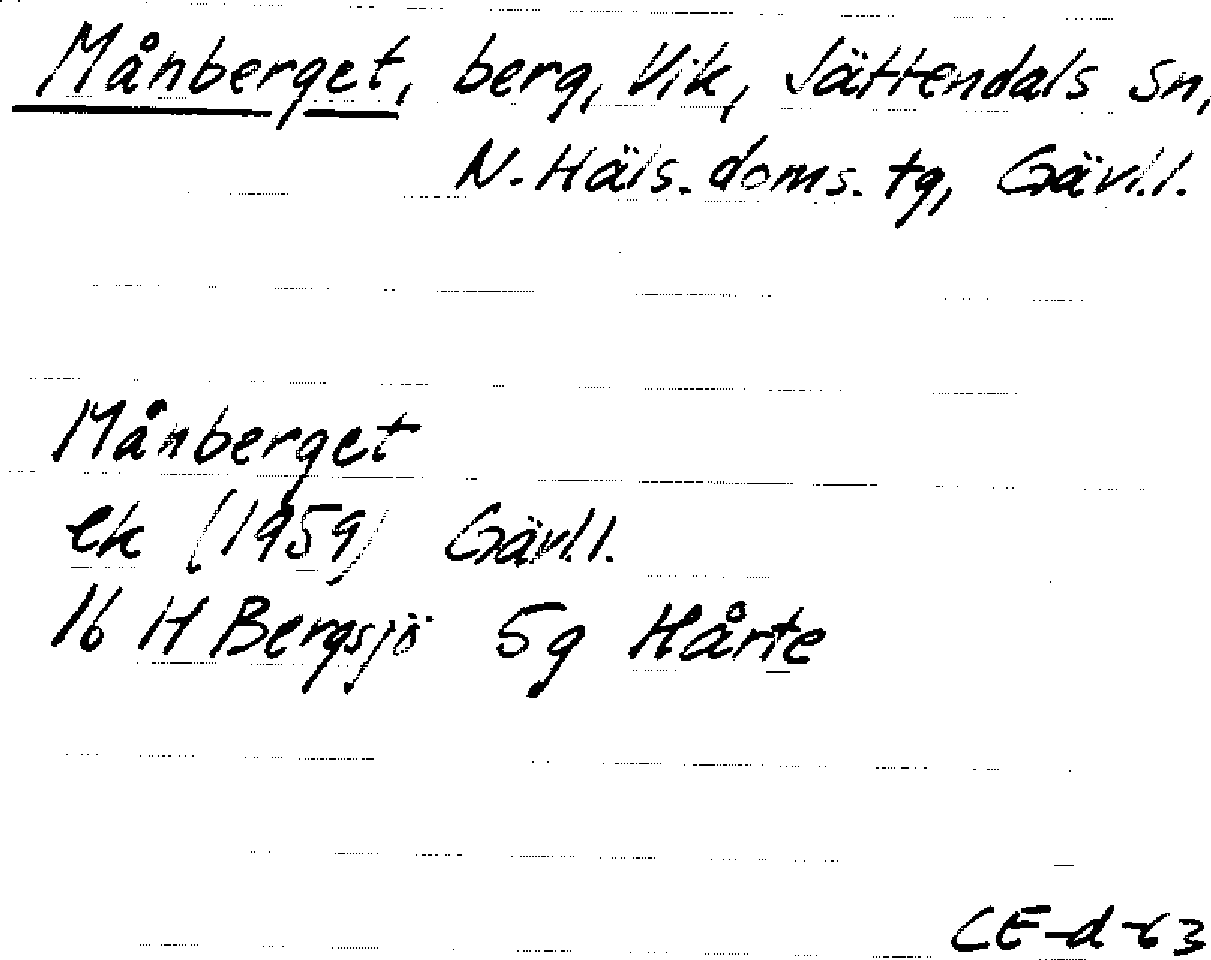 Månberget, berg, Vik, Jättendals sn,
N. Häls. doms. tg, Gävl.l.
Månberget
ek (1959) Gävl.l.
16 H Bergsjö 5g Hårte
CE-d-63